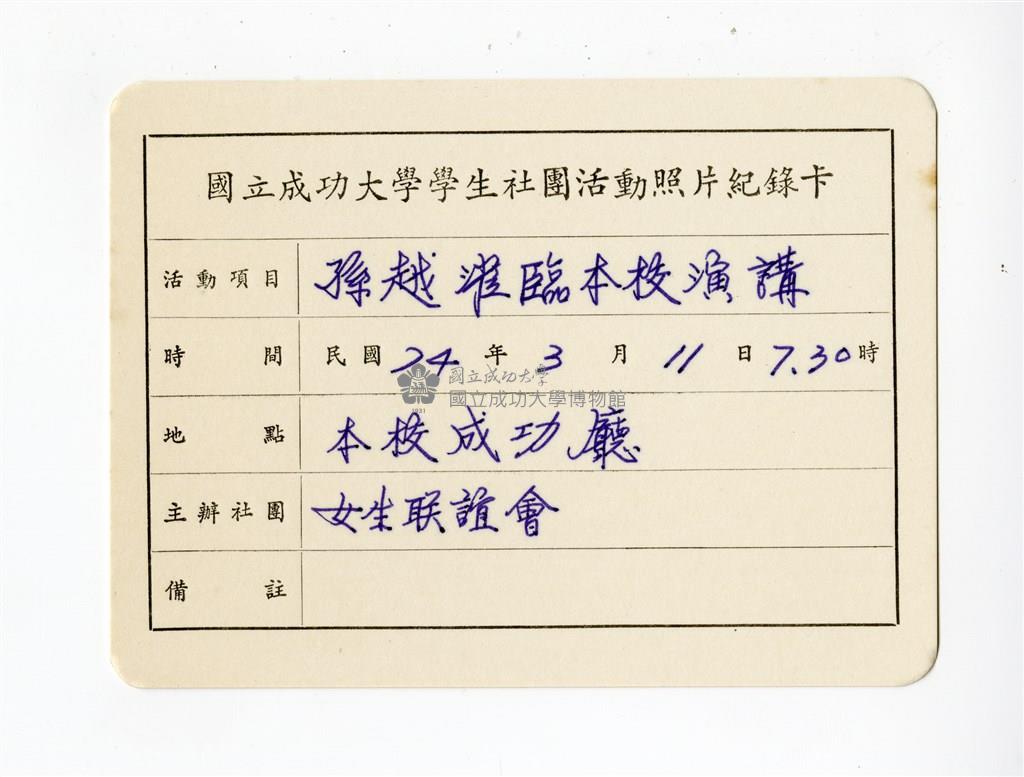 國立成功大學學生社團活動照片紀錄卡
活動項目 孫越涖臨本校演講
時間 民國 74 年 3 月 11 日 7.30 時
國立成功大學
國立成功大學博物館
1931
地點 本校成功廳
主辦社團 女生联誼會
備註